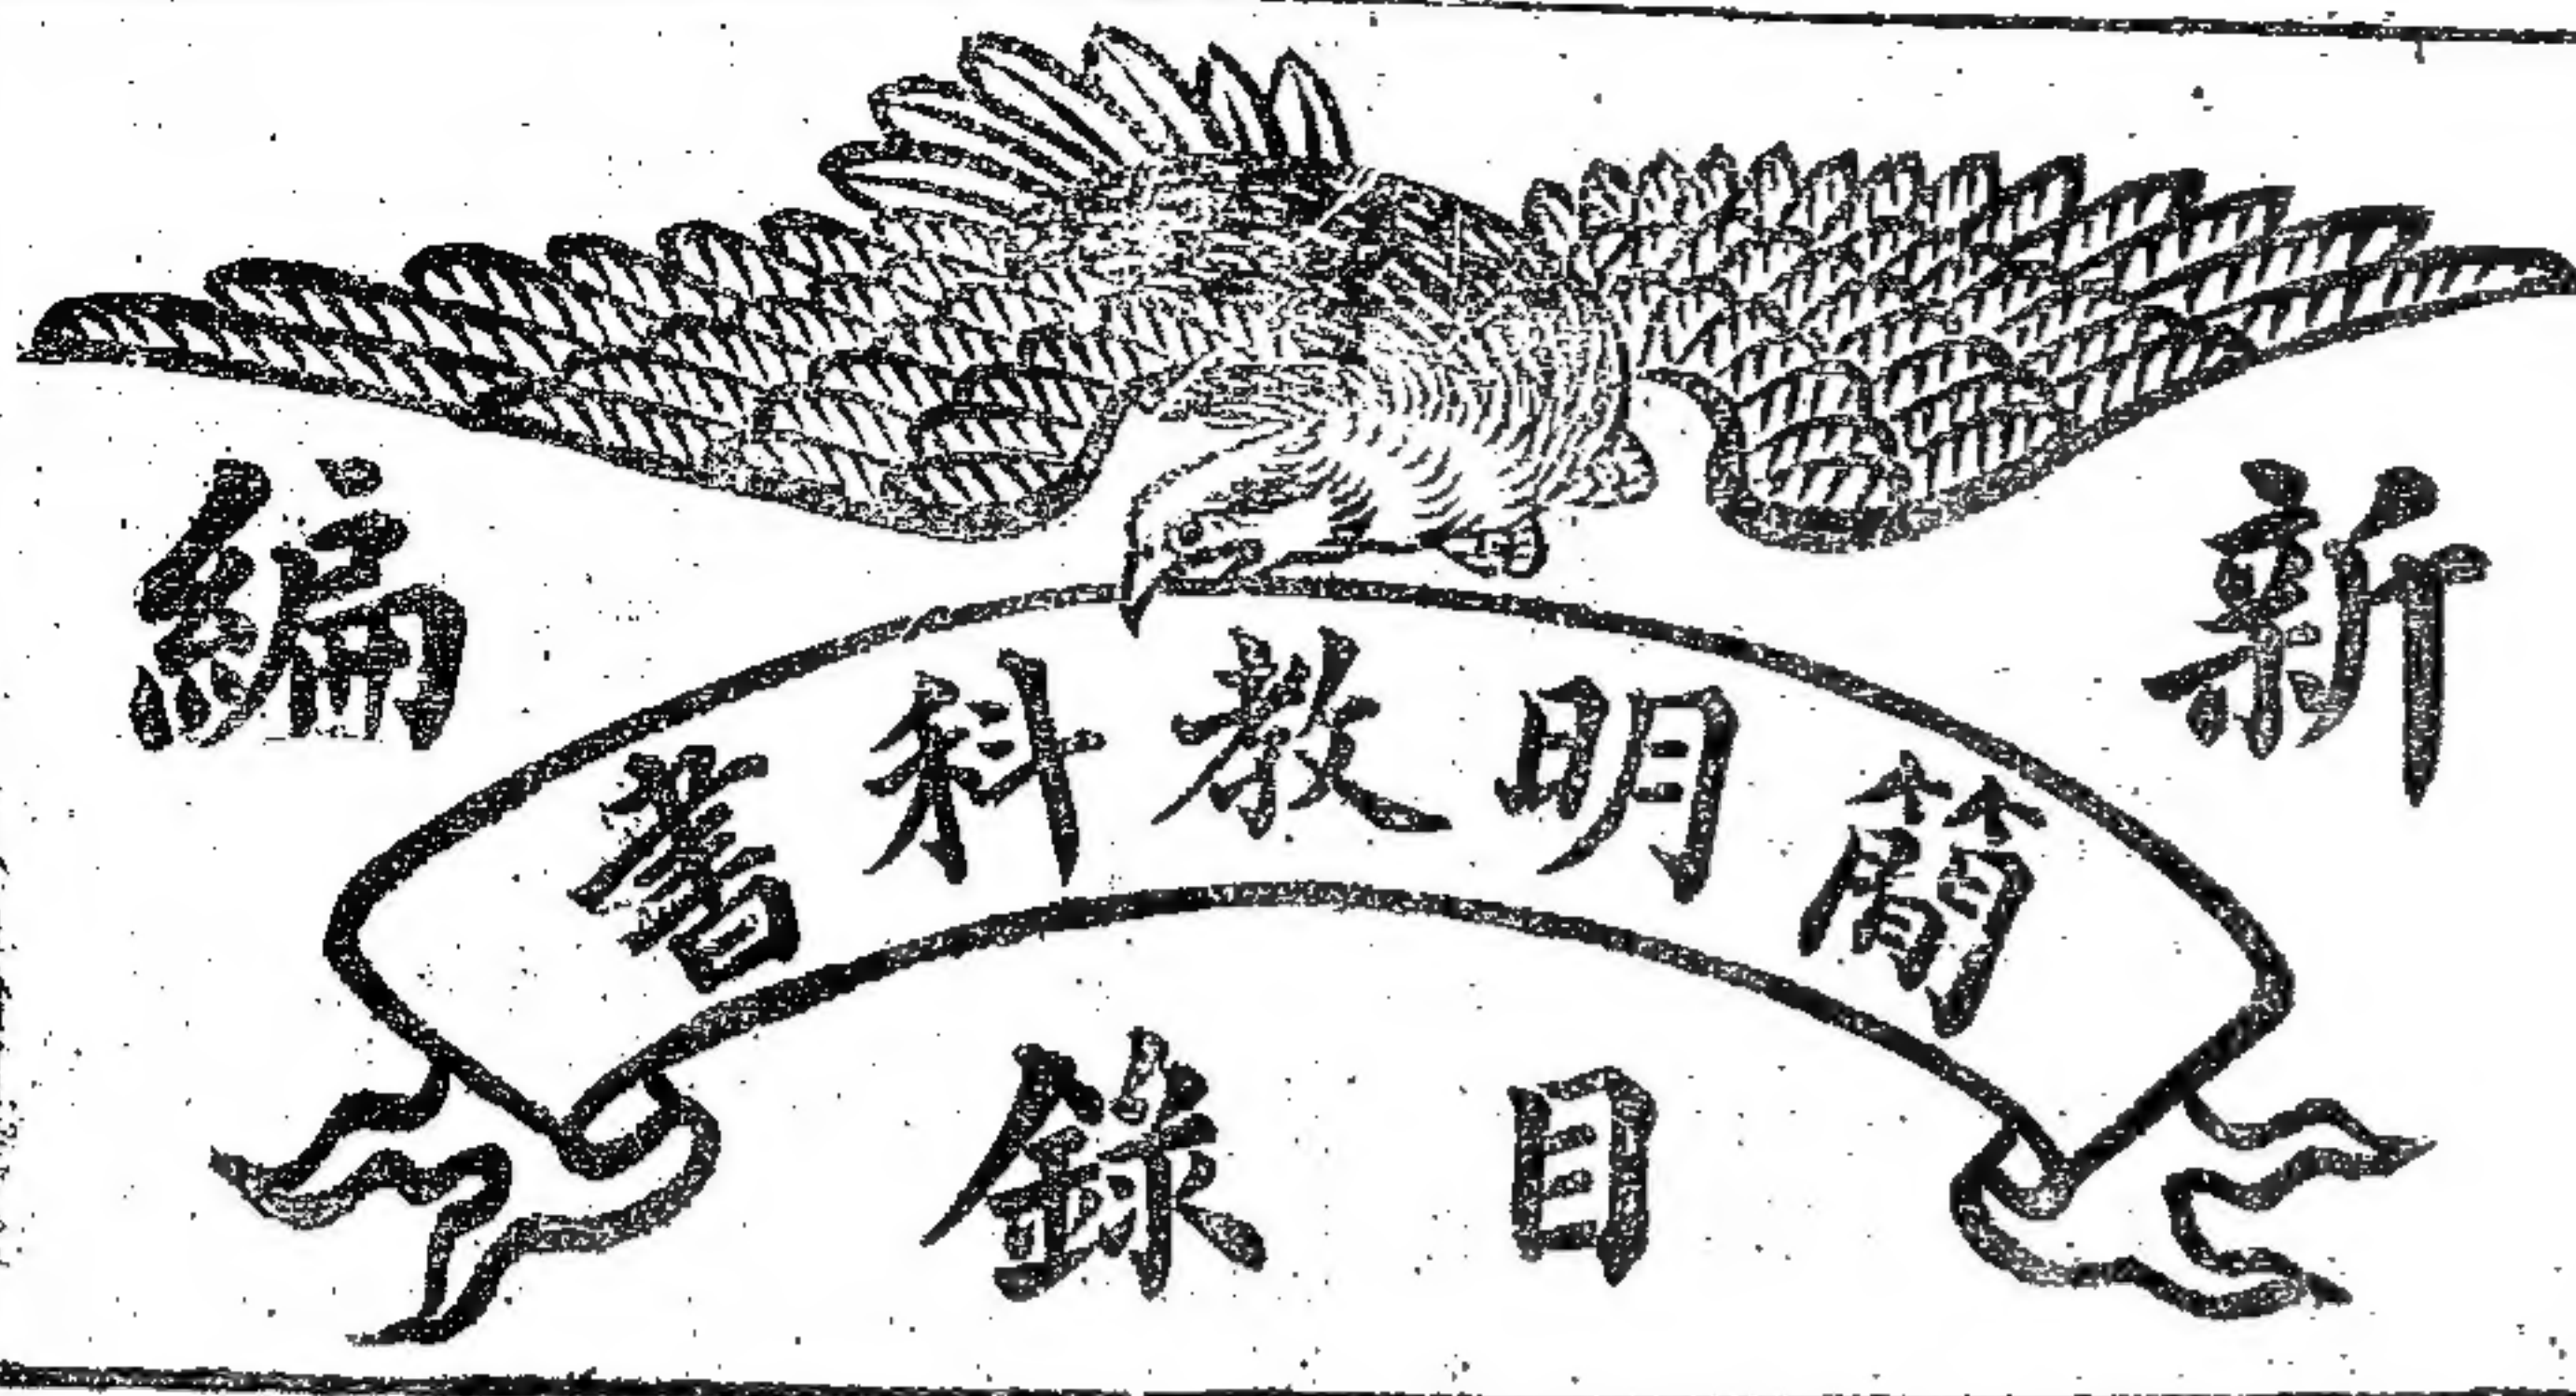 新編
簡明教科書
目錄